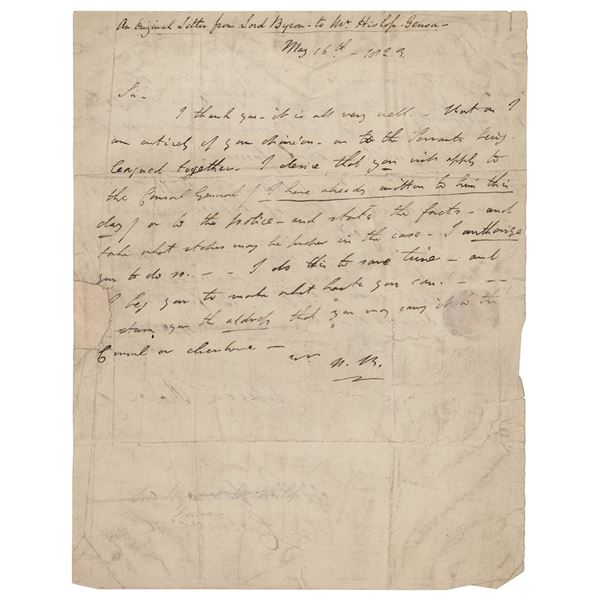 An Original Letter from Lord Byron - to Mr Hislop - Genoa -
May 16th - 1823.
Sir -
I thank you - it is all very well - But as I
am entirely of your opinion - as to the Servants being
leagued together - I desire that you will apply to
the Consul General / I have already written to him this
day / or to the police - and state the facts - and
take what steps may be proper in the case - I authorize
you to do so. - - I do this to save time - and
I beg you to make what haste you can. - - -
I return you the address that you may carry it to the
Consul or elsewhere -
yrs N. B.
Lord to Mr Hislop
Genoa